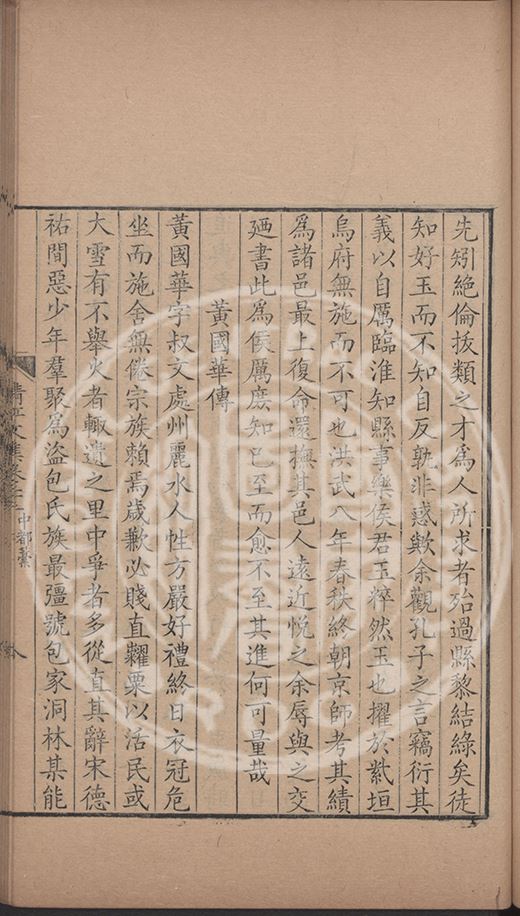 先矧絶倫拔類之才爲人所求者殆過縣黎結綠矣徒
知好玉而不知自反孰非惑歟余觀孔子之言竊衍其
義以自厲臨淮知縣事樂侯君玉粹然玉也擢於紫垣
烏府無施而不可也洪武八年春秩終朝京師考其績
爲諸邑最上復命還撫其邑人遠近悦之余辱與之交
廼書此爲侯厲庶知已至而愈不至其進何可量哉
黃國華傳
黃國華字叔文處州麗水人性方嚴好禮終日衣冠危
坐而施舍無倦宗族賴焉歲歉必賤直糶粟以活民或
大雪有不舉火者輙遺之里中爭者多從直其辭宋德
祐間惡少年羣聚爲盜包氏族最彊號包家洞林某能
中都藁